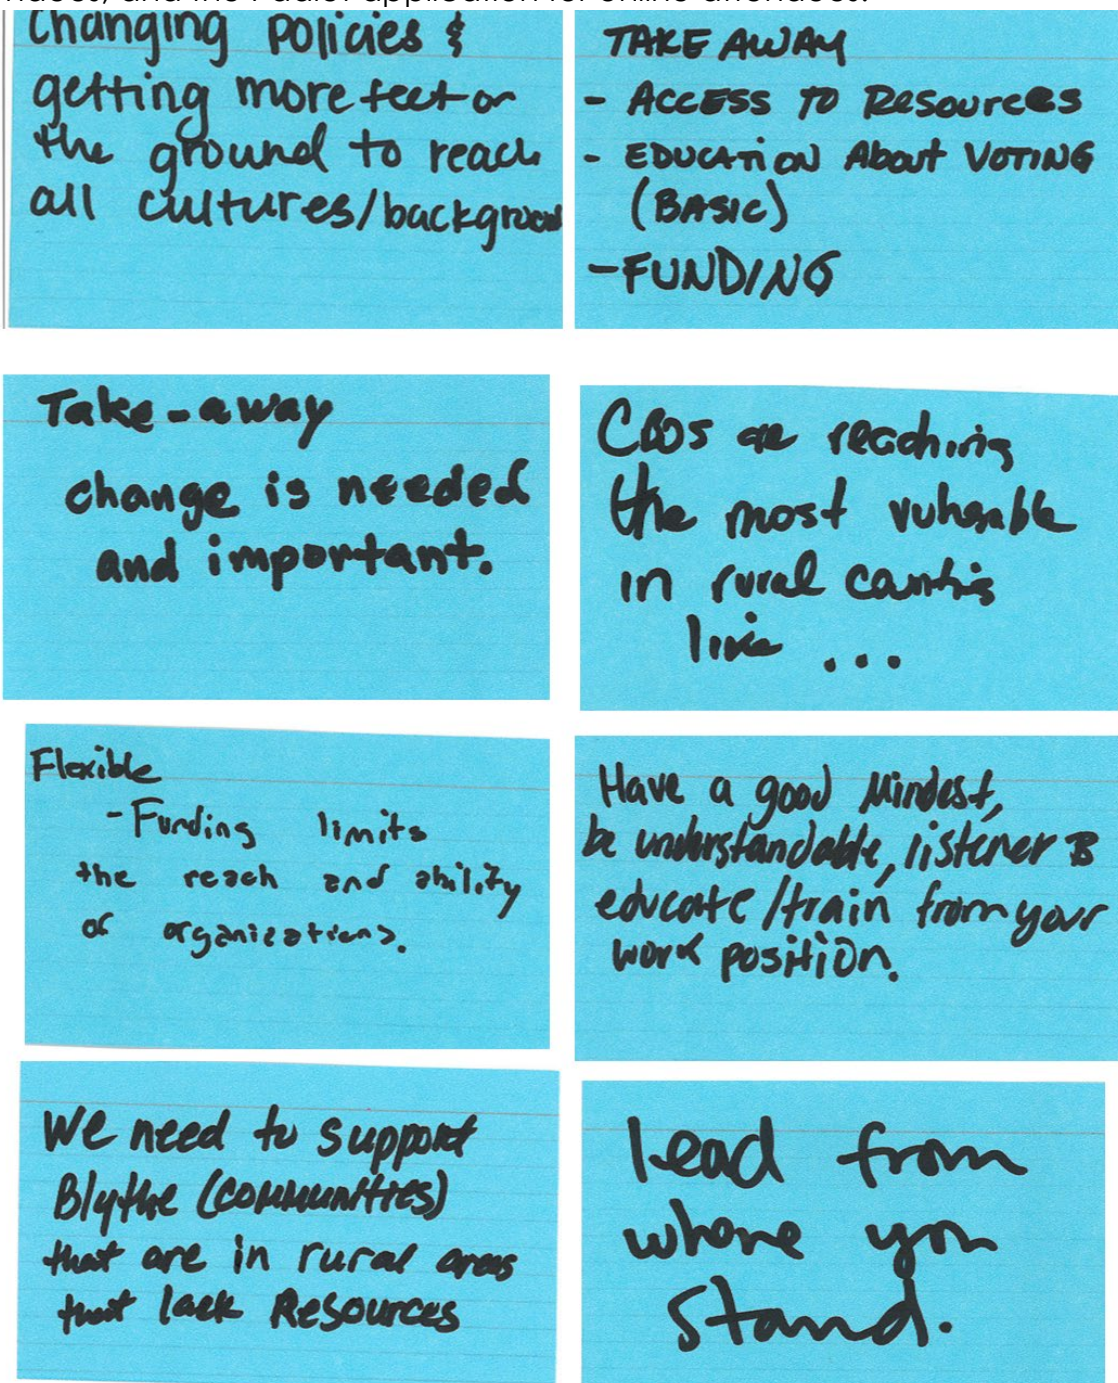 Changing policies &
getting more feet on
the ground to reach
all cultures/background
TAKE AWAY
- ACCESS TO Resources
- EDUCATION About VOTING
(BASIC)
- FUNDING
Take-away
change is needed
and important.
CBOs are reaching
the most vulnerable
in rural counties
like ...
Flexible
- Funding limits
the reach and ability
of organizations.
Have a good Mindest,
be understandable, listener &
educate/train from your
work position.
We need to support
Blythe (communities)
that are in rural areas
that lack Resources
Lead from
where you
stand.